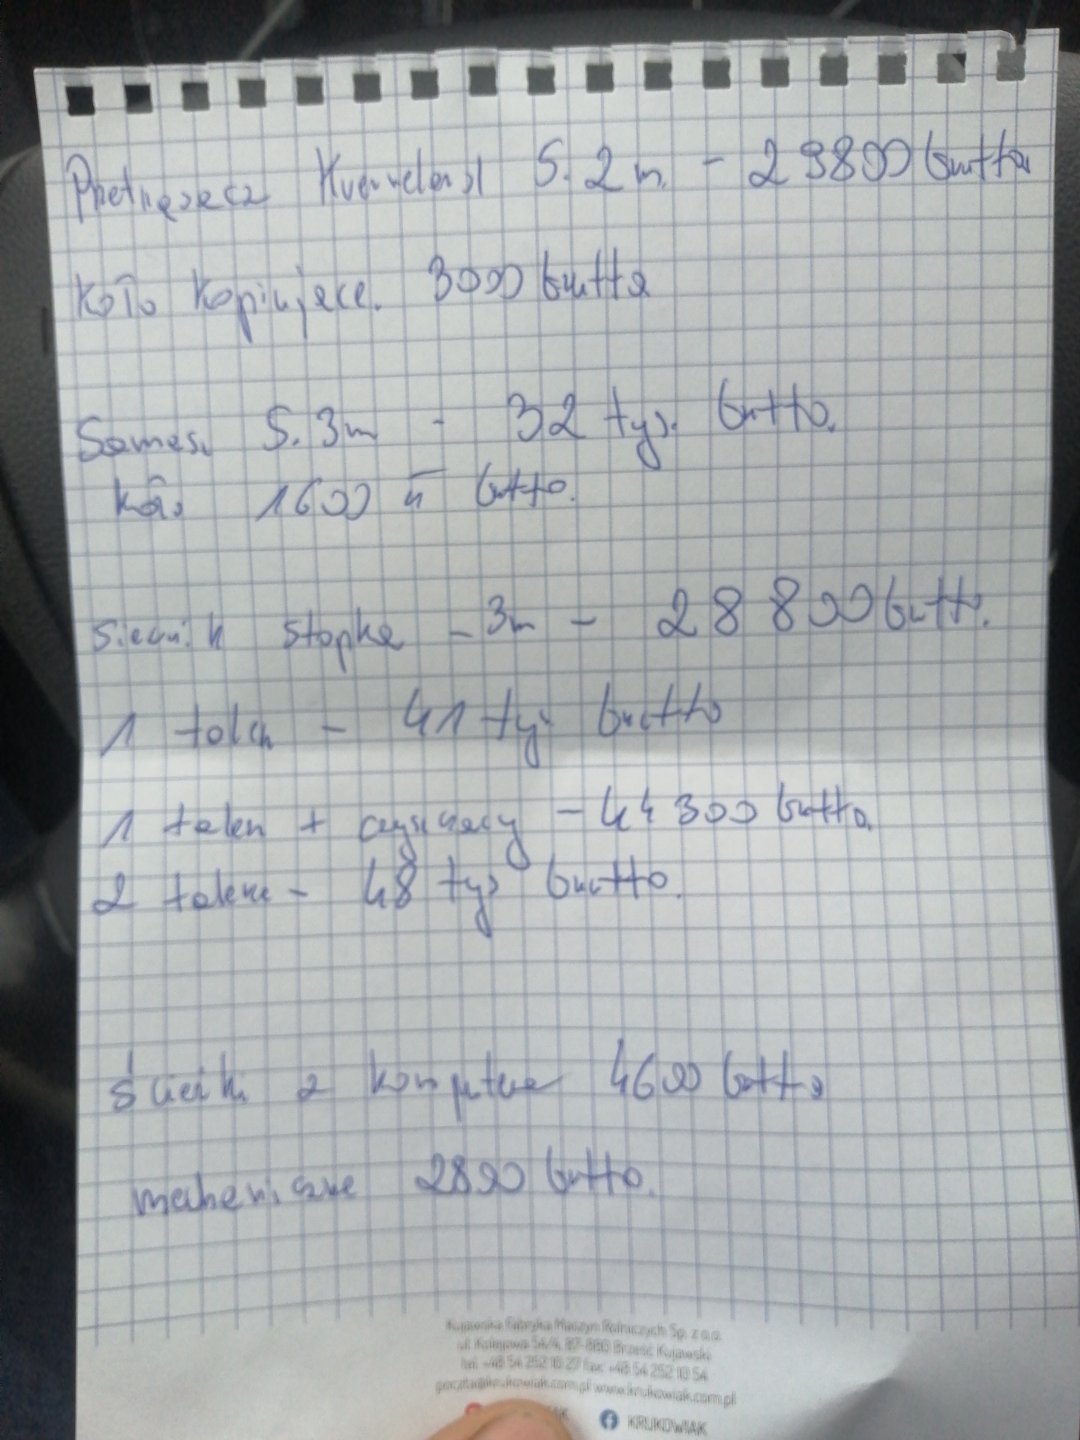 Przetrząsacz Kverneland 5.2m - 29800 brutto
Koło kopiujące. 3000 brutto
Samasz 5.3m - 32 tyś. brutto.
koło 1600 zł brutto.
siewnik stopka - 3m - 28 800 brutto.
1 talerz - 41 tyś brutto
1 talerz + czyszczący - 44 300 brutto
2 talerze - 48 tyś brutto.
Ścieżki z komputera 4600 brutto
mechaniczne 2800 brutto.
Kujawska Fabryka Maszyn Rolniczych Sp. z o.o.
ul. Kolejowa 54/4, 87-880 Brześć Kujawski
tel. +48 54 252 10 27 fax: +48 54 252 10 54
poczta@krukowiak.com.pl www.krukowiak.com.pl
KRUKOWIAK